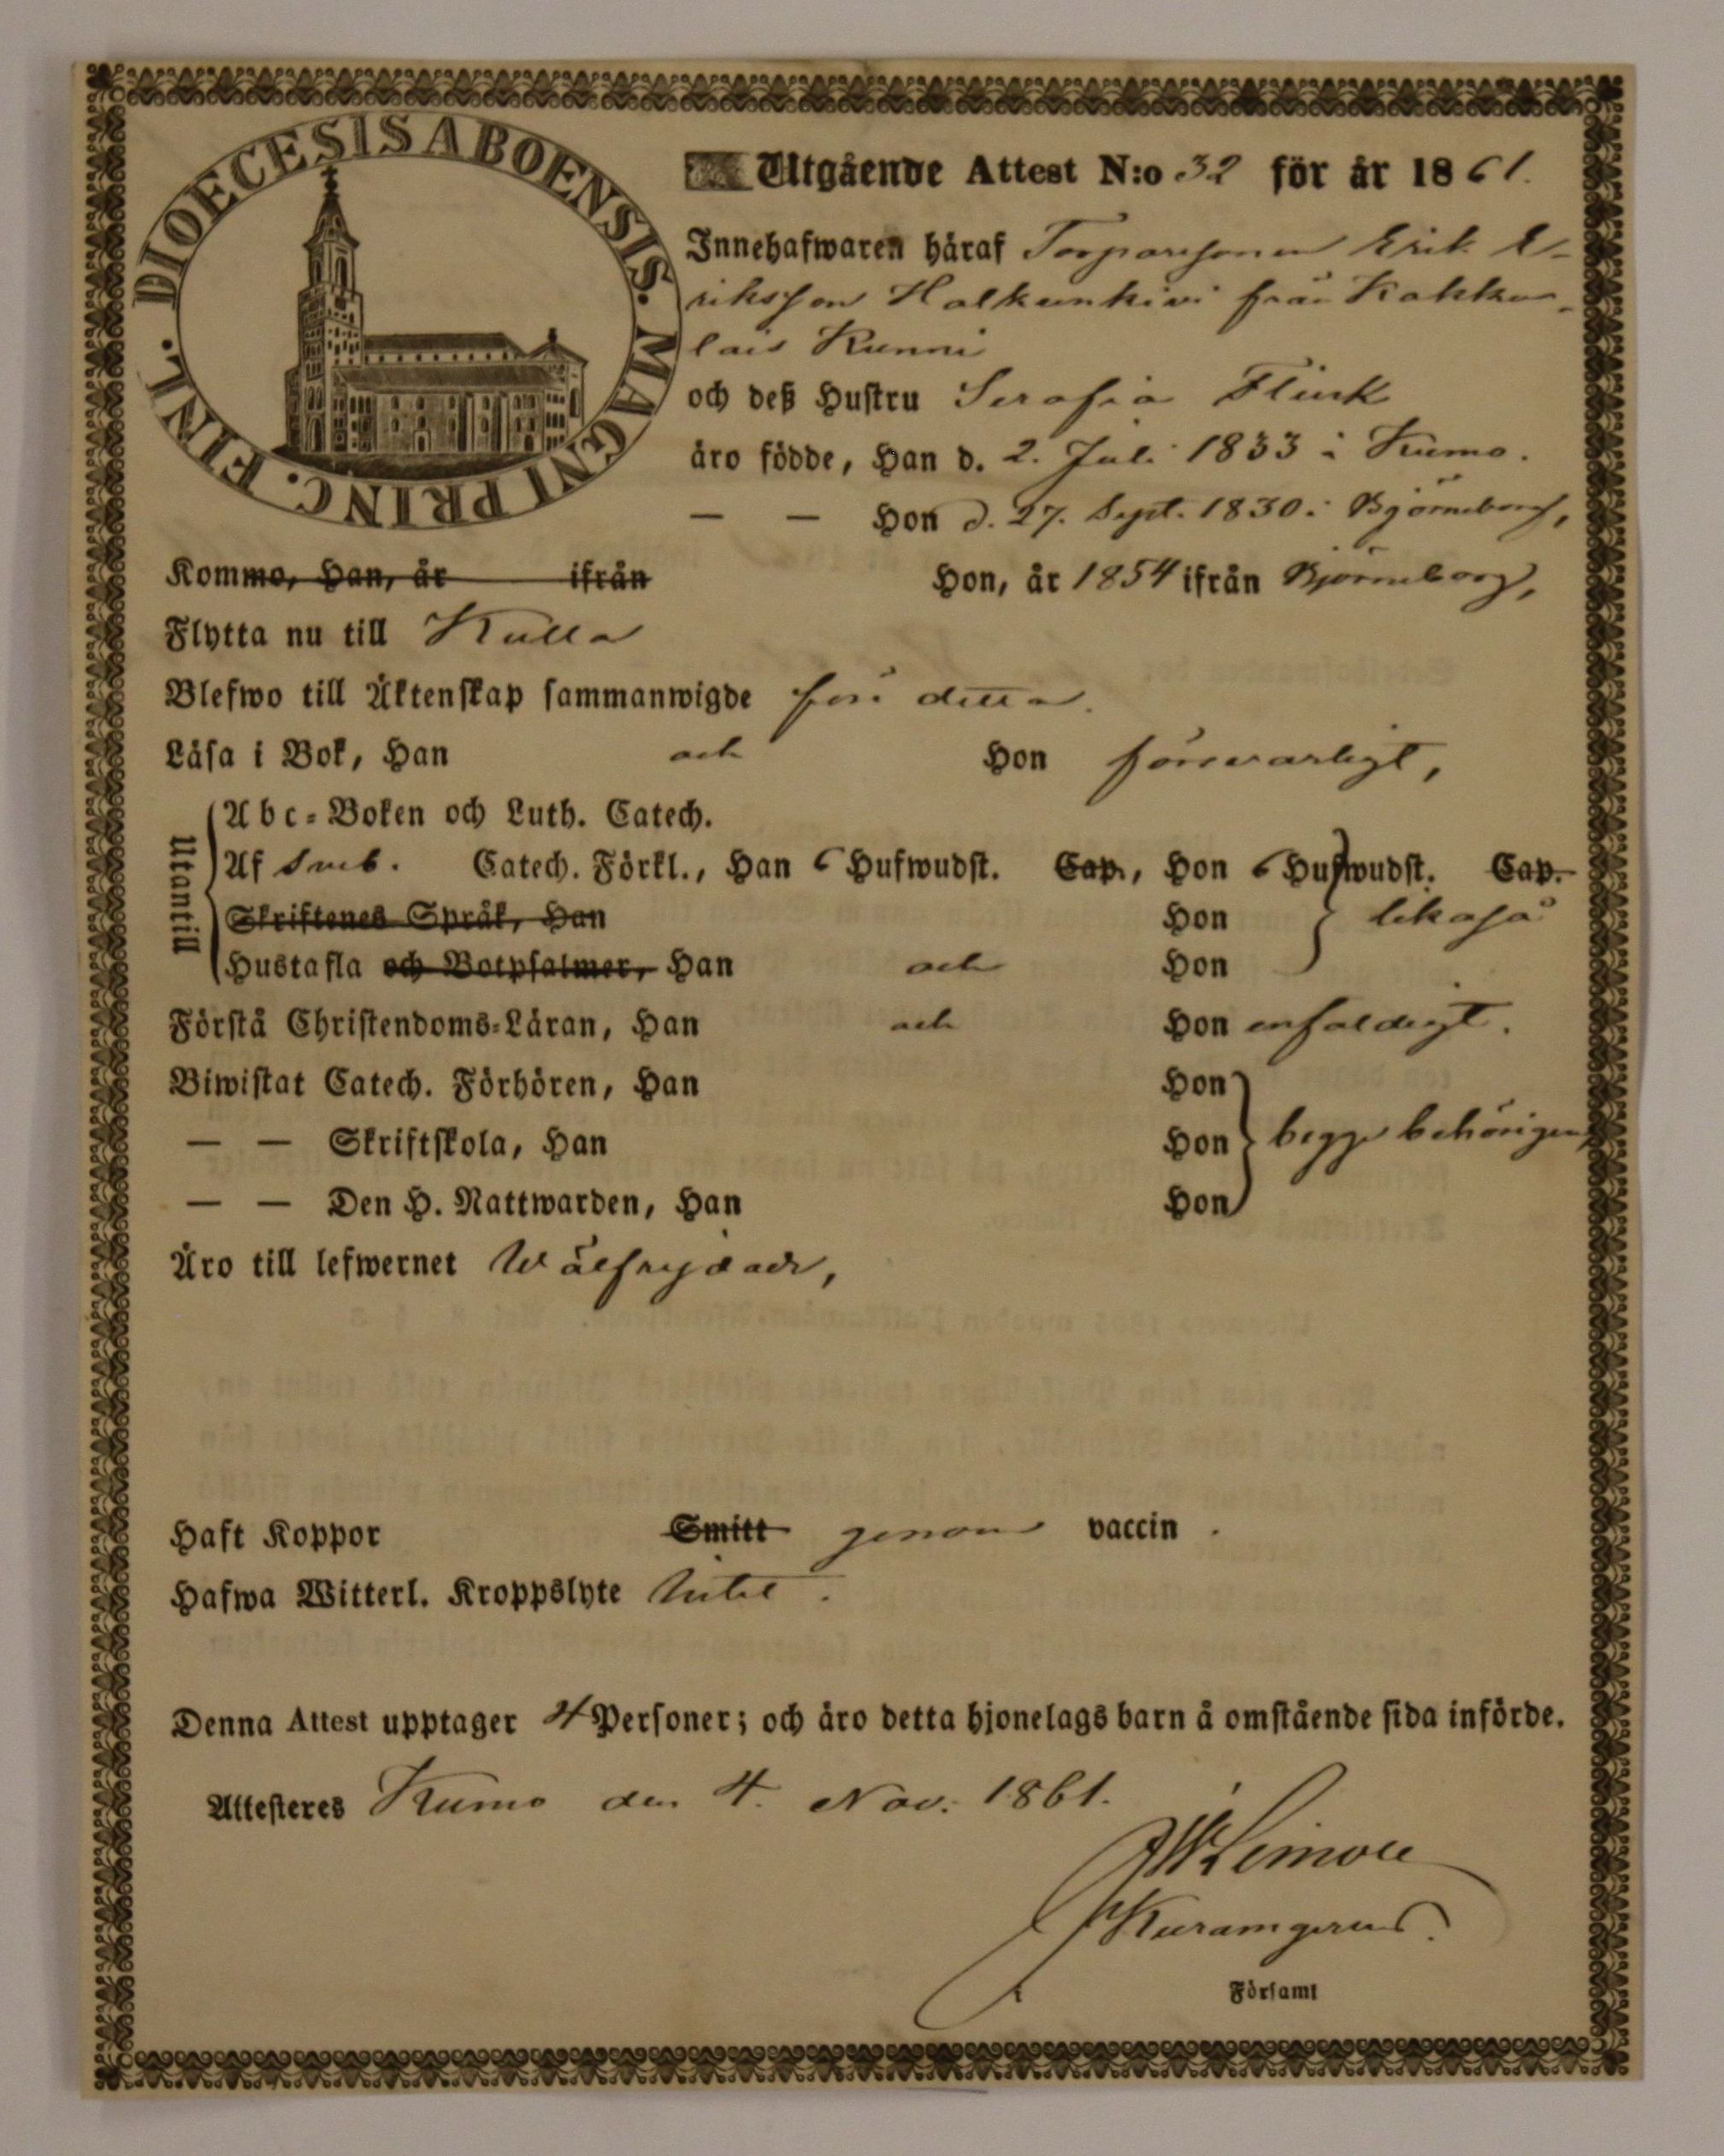 DIOECESIS ABOENSIS. MAGNI PRINC. FINL.
Utgående Attest N:o 32 för år 1861.
Innehafwaren häraf Torparesonen Erik E-
riksson Halkunkivi från Kakku-
lais Kunni
och deß Hustru Serafia Flink
äro födde, Han d. 2. Juli 1833 i Kumo.
— — Hon d. 27. Sept. 1830 i Björneborg,
Kommo, Han, år ifrån Hon, år 1854 ifrån Björneborg,
Flytta nu till Kulla
Blefwo till Äktenskap sammanwigde före detta.
Läsa i Bok, Han och Hon försvarligt,
Utantill
Abc-Boken och Luth. Catech.
Af Sveb. Catech. Förkl., Han 6 Hufwudst. Cap., Hon 6 Hufwudst. Cap.
Skriftenes Språk, Han Hon likaså
Hustafla och Botpsalmer, Han och Hon
Förstå Christendoms-Läran, Han och Hon enfaldigt.
Biwistat Catech. Förhören, Han Hon
— — Skriftskola, Han Hon begge behörigen
— — Den H. Nattwarden, Han Hon
Äro till lefwernet Wälfrejdade,
Haft Koppor Smitt genom vaccin.
Hafwa Witterl. Kroppslyte Intet.
Denna Attest upptager 4 Personer; och äro detta hjonelags barn å omstående sida införde.
Attesteres Kumo den 4. Nov. 1861.
Församl